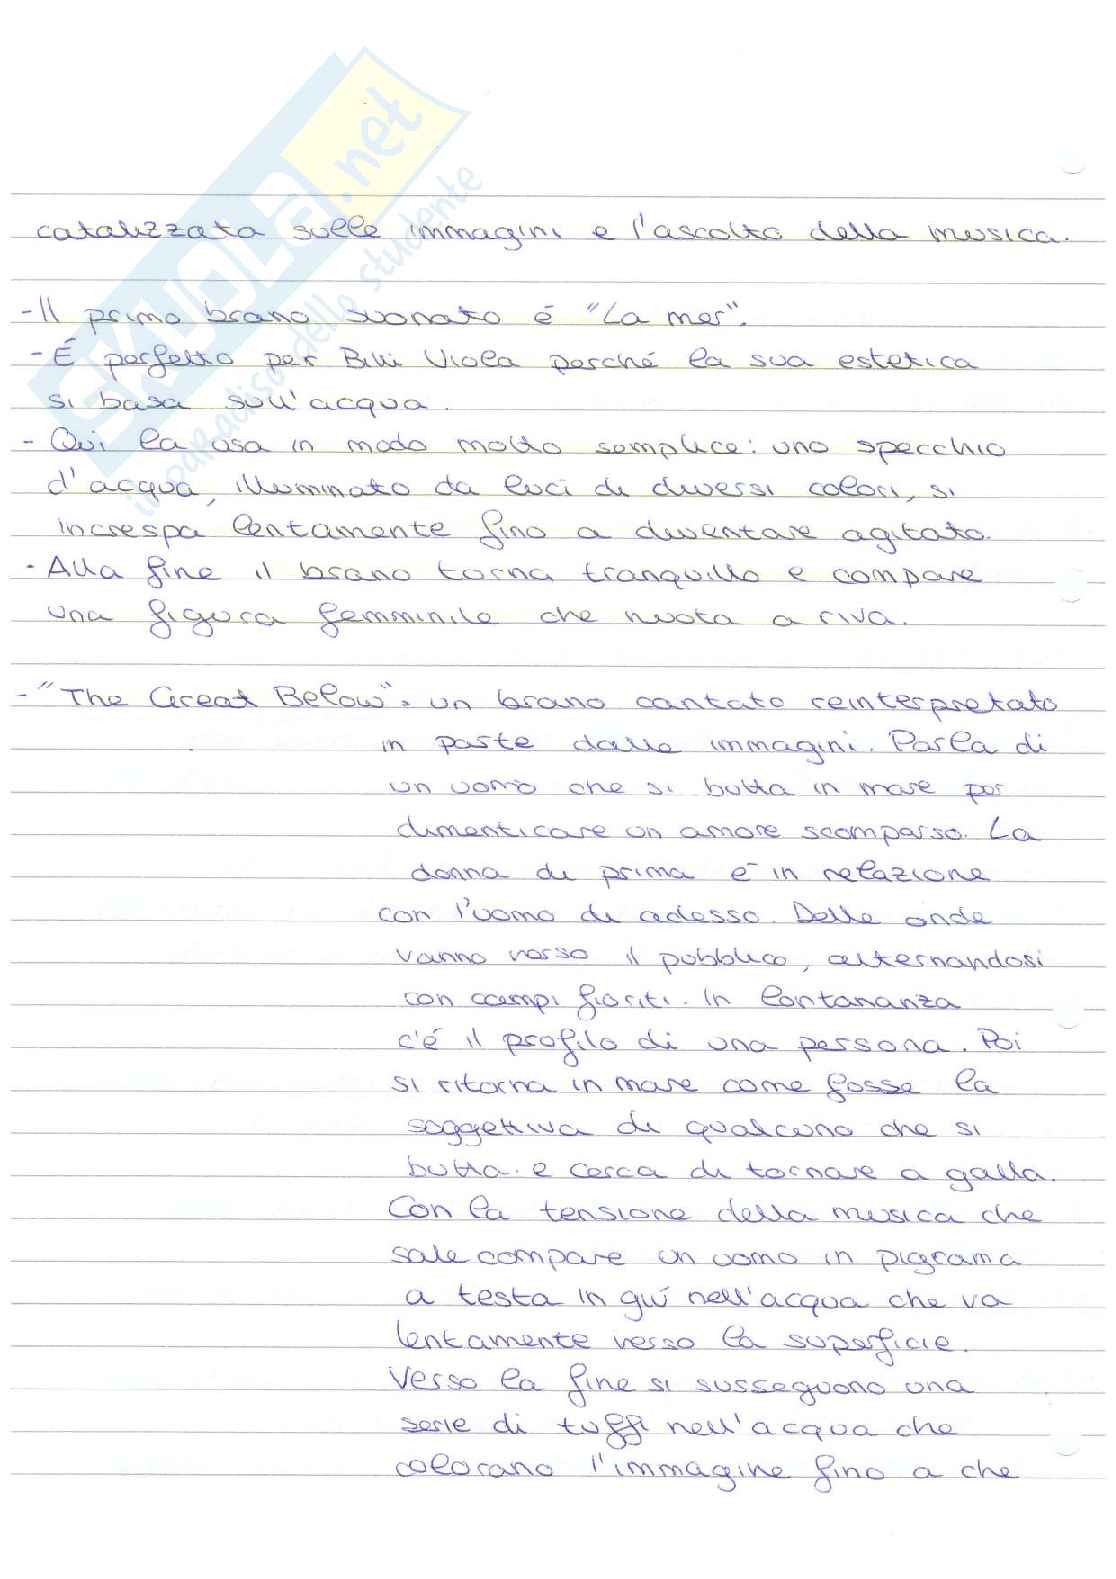 SKUOLA.net
il paradiso dello studente
catalizzata sulle immagini e l'ascolto della musica.
- Il primo brano suonato é "La mer".
- É perfetto per Bill Viola perché la sua estetica
si basa sull'acqua.
- Qui la usa in modo molto semplice: uno specchio
d'acqua, illuminato da luci di diversi colori, si
increspa lentamente fino a diventare agitato.
- Alla fine il brano torna tranquillo e compare
una figura femminile che nuota a riva.
- "The Great Below": un brano cantato reinterpretato
in parte dalle immagini. Parla di
un uomo che si butta in mare per
dimenticare un amore scomparso. La
donna di prima é in relazione
con l'uomo di adesso. Delle onde
vanno verso il pubblico, alternandosi
con campi fioriti. In lontananza
c'é il profilo di una persona. Poi
si ritorna in mare come fosse la
soggettiva di qualcuno che si
butta e cerca di tornare a galla.
Con la tensione della musica che
sale compare un uomo in pigrama
a testa in giú nell'acqua che va
lentamente verso la superficie.
Verso la fine si susseguono una
serie di tuffi nell'acqua che
colorano l'immagine fino a che